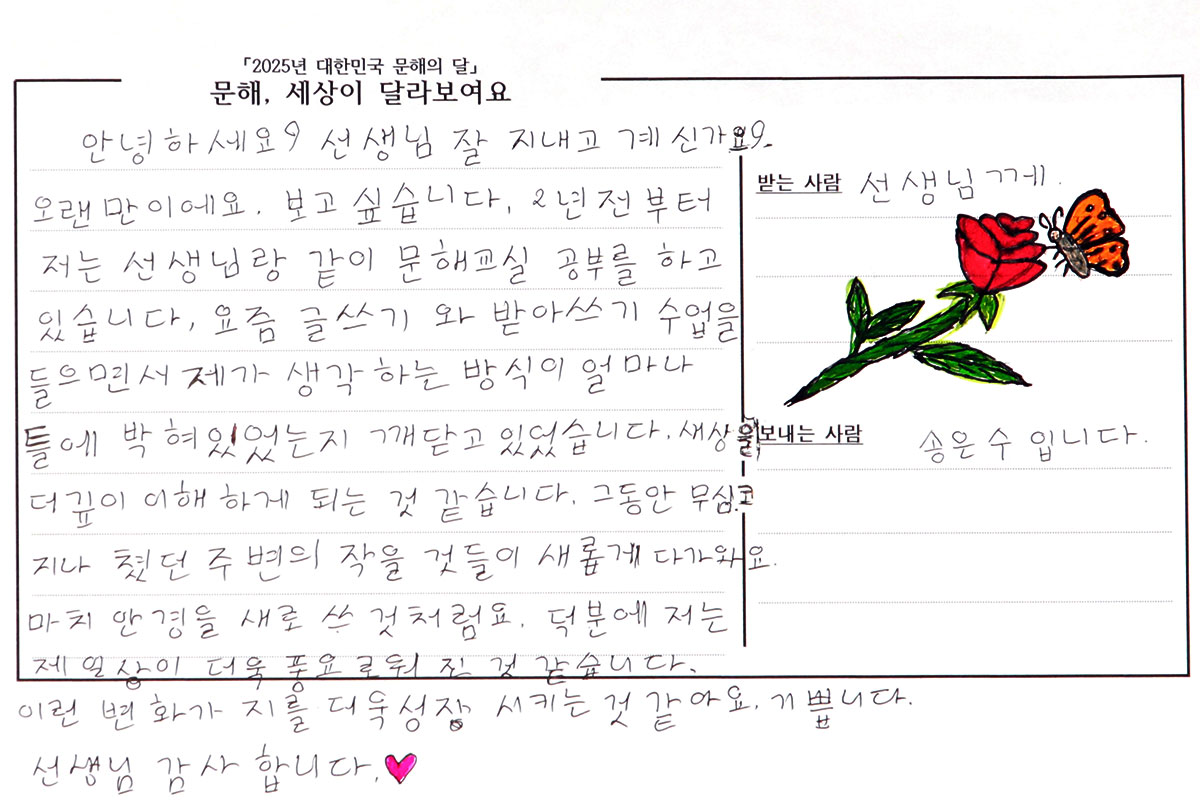 「2025년 대한민국 문해의 달」
문해, 세상이 달라보여요
안녕하세요? 선생님 잘 지내고 계신가요?
오랜만이에요. 보고싶습니다. 2년전부터
저는 선생님랑 같이 문해교실 공부를 하고
있습니다, 요즘 글쓰기 와 받아쓰기 수업을
들으면서 제가 생각하는 방식이 얼마나
틀에 박혀있었는지 깨닫고있었습니다. 세상을
더깊이 이해하게 되는 것 같습니다. 그동안 무심코
지나 쳤던 주변의 작을 것들이 새롭게 다가와요.
마치 안경을 새로 쓰 것처럼요. 덕분에 저는
제 일상이 더욱 풍요로워 진 것 같습니다.
이런 변화가 지를 더욱성장 시키는 것 같아요. 기쁩니다.
선생님 감사합니다.
받는 사람 선생님께.
보내는 사람 송은수입니다.